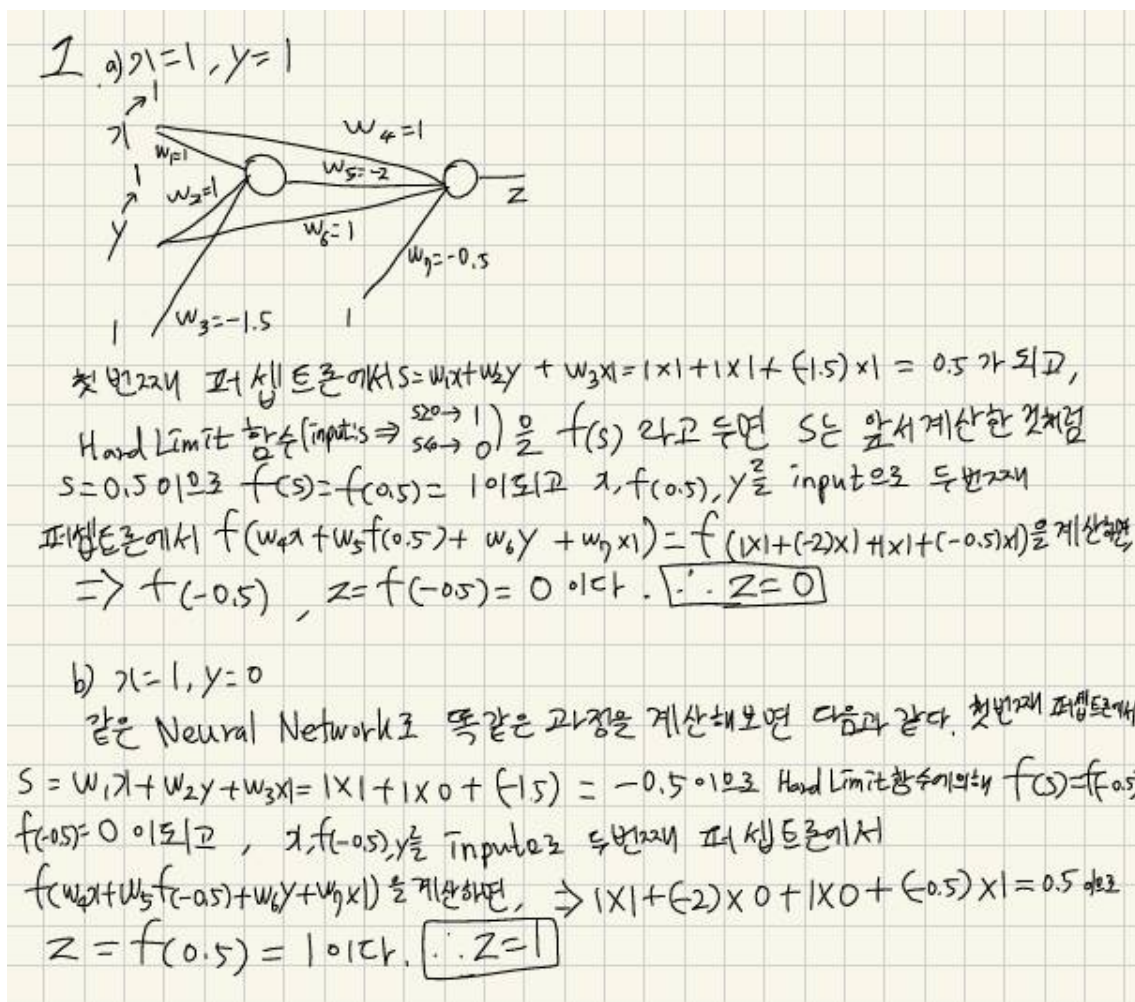 1 a) x=1, y=1
1
x
w₄=1
w₁=1
1
w₂=1
w₅=-2
z
y
w₆=1
w₇=-0.5
1
w₃=-1.5
1
첫번째 퍼셉트론에서 s=w₁x+w₂y + w₃×1=1×1+1×1+(-1.5)×1 = 0.5가 되고,
Hard Limit 함수(input:s ⇒ s≥0→1 s<0→0)을 f(s) 라고 두면 s는 앞서 계산한 것처럼
s=0.5이므로 f(s)=f(0.5)= 1이되고 x, f(0.5), y를 input으로 두번째
퍼셉트론에서 f(w₄x+w₅f(0.5)+ w₆y +w₇×1)=f(1×1+(-2)×1+1×1+(-0.5)×1)을 계산하면,
=> f(-0.5) , z=f(-0.5)= 0 이다. ∴ z=0
b) x=1, y=0
같은 Neural Network로 똑같은 과정을 계산해보면 다음과 같다. 첫번째 퍼셉트론에서
s = w₁x+w₂y+w₃×1= 1×1+1×0+(-1.5) = -0.5이므로 Hard Limit함수에의해 f(s)=f(-0.5)
f(-0.5)=0 이되고 , x,f(-0.5),y를 input으로 두번째 퍼셉트론에서
f(w₄x+w₅f(-0.5)+w₆y+w₇×1)을 계산하면, ⇒ 1×1+(-2)×0+1×0+(-0.5)×1=0.5이므로
z = f(0.5) = 1이다. ∴ z=1